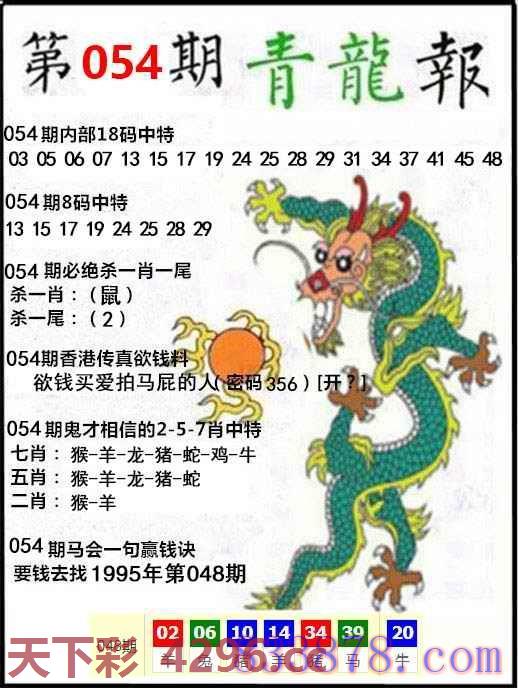 第054期青龍報
054期内部18码中特
03 05 06 07 13 15 17 19 24 25 28 29 31 34 37 41 45 48
054期8码中特
13 15 17 19 24 25 28 29
054 期必绝杀一肖一尾
杀一肖：(鼠)
杀一尾：(2)
054期香港传真欲钱料
欲钱买爱拍马屁的人(密码356)[开?]
054期鬼才相信的2-5-7肖中特
七肖：猴-羊-龙-猪-蛇-鸡-牛
五肖：猴-羊-龙-猪-蛇
二肖：猴-羊
054期马会一句赢钱诀
要钱去找1995年第048期
048期 02 06 10 14 34 39 20
羊 兔 猪 羊 猪 马 牛
天下彩 4296.cc
878.com